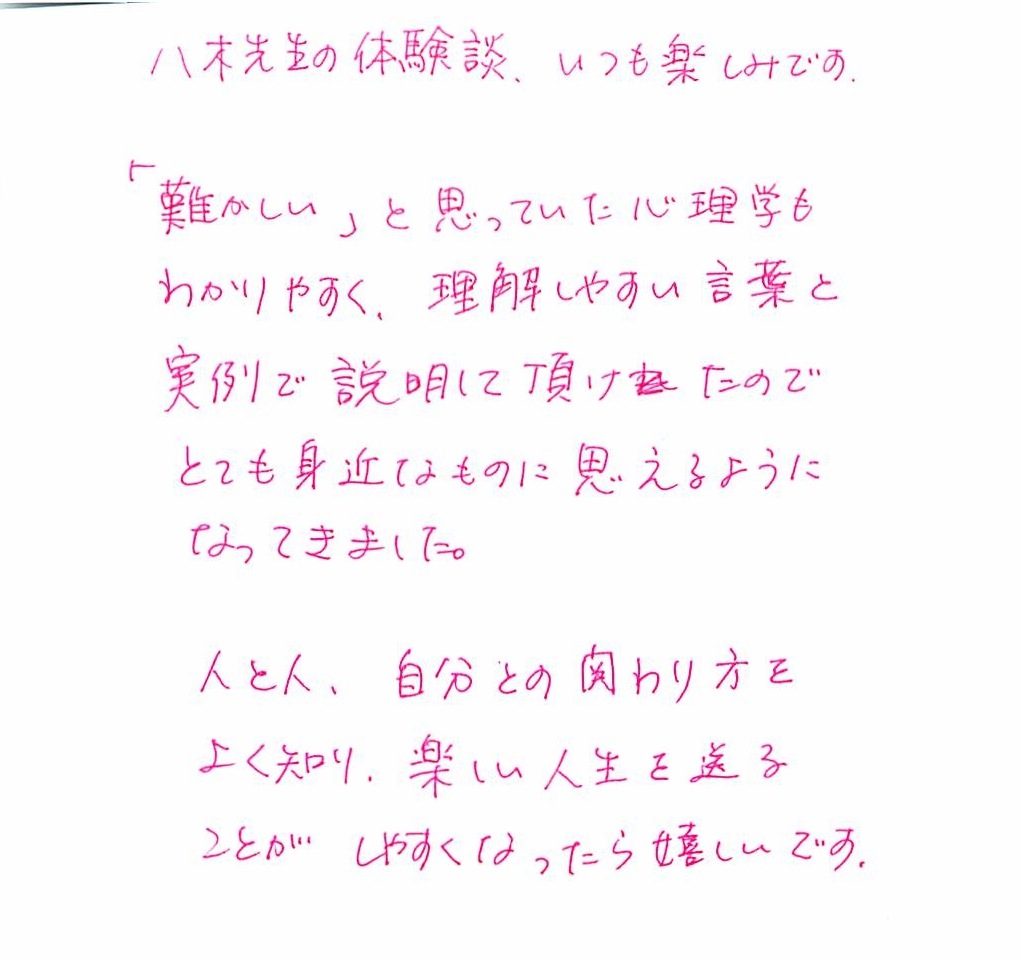 八木先生の体験談、いつも楽しみです。
「難かしい」と思っていた心理学も
わかりやすく、理解しやすい言葉と
実例で説明して頂けたので
とても身近なものに思えるように
なってきました。
人と人、自分との関わり方を
よく知り、楽しい人生を送る
ことが しやすくなったら嬉しいです。